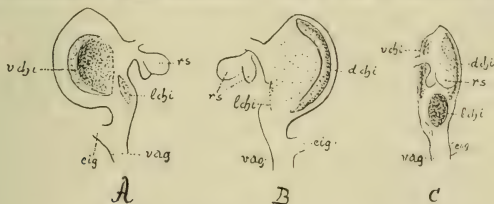 vchi
rs
lchi
eig
vag
A
rs
lchi
dchi
eig.
vag
B
vchi
dchi
rs
lchi
vag
eig
C